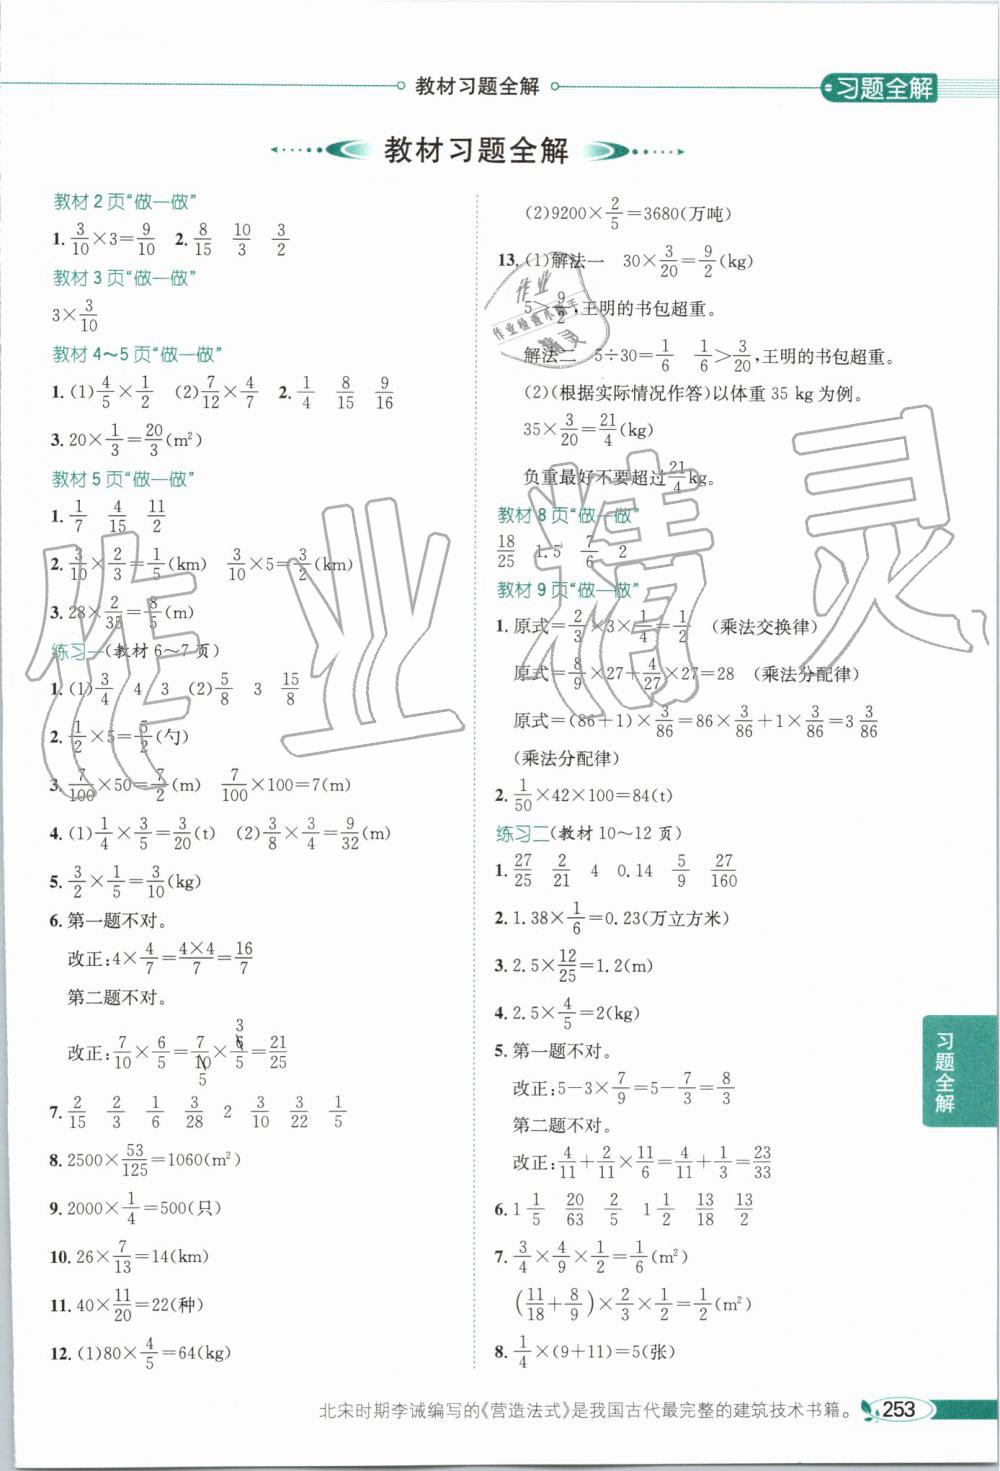 教材习题全解
习题全解
教材习题全解
教材 2 页“做一做”
1. 3/10×3=9/10 2. 8/15 10/3 3/2
教材 3 页“做一做”
3×3/10
教材 4～5 页“做一做”
1. (1)4/5×1/2 (2)7/12×4/7 2. 1/4 8/15 9/16
3. 20×1/3=20/3(m²)
教材 5 页“做一做”
1. 1/7 4/15 11/2
2. 3/10×2/3=1/5(km) 3/10×5=3/2(km)
3. 28×2/35=8/5(m)
练习一(教材 6～7 页)
1. (1)3/4 4 3 (2)5/8 3 15/8
2. 1/2×5=5/2(勺)
3. 7/100×50=7/2(m) 7/100×100=7(m)
4. (1)1/4×3/5=3/20(t) (2)3/8×3/4=9/32(m)
5. 3/2×1/5=3/10(kg)
6. 第一题不对。
改正:4×4/7=4×4/7=16/7
第二题不对。
改正:7/10×6/5=7/10×6/5=21/25
3
5
7. 2/15 2/3 1/6 3/28 2 3/10 3/22 1/5
8. 2500×53/125=1060(m²)
9. 2000×1/4=500(只)
10. 26×7/13=14(km)
11. 40×11/20=22(种)
12. (1)80×4/5=64(kg)
(2)9200×2/5=3680(万吨)
13. (1)解法一 30×3/20=9/2(kg)
5>9/2,王明的书包超重。
解法二 5÷30=1/6 1/6>3/20,王明的书包超重。
(2)(根据实际情况作答)以体重 35 kg 为例。
35×3/20=21/4(kg)
负重最好不要超过21/4kg。
教材 8 页“做一做”
18/25 1.5 7/6 2
教材 9 页“做一做”
1. 原式=2/3×3×1/4=1/2 (乘法交换律)
原式=8/9×27+4/27×27=28 (乘法分配律)
原式=(86+1)×3/86=86×3/86+1×3/86=3 3/86
(乘法分配律)
2. 1/50×42×100=84(t)
练习二(教材 10～12 页)
1. 27/25 2/21 4 0.14 5/9 27/160
2. 1.38×1/6=0.23(万立方米)
3. 2.5×12/25=1.2(m)
4. 2.5×4/5=2(kg)
5. 第一题不对。
改正:5-3×7/9=5-7/3=8/3
第二题不对。
改正:4/11+2/11×11/6=4/11+1/3=23/33
6. 1 1/5 20/63 2/5 1 1/2 13/18 13/2
7. 3/4×4/9×1/2=1/6(m²)
(11/18+8/9)×2/3×1/2=1/2(m²)
8. 1/4×(9+11)=5(张)
习题全解
北宋时期李诫编写的《营造法式》是我国古代最完整的建筑技术书籍。
253
作业
作业检查小助手
精灵
作业精灵